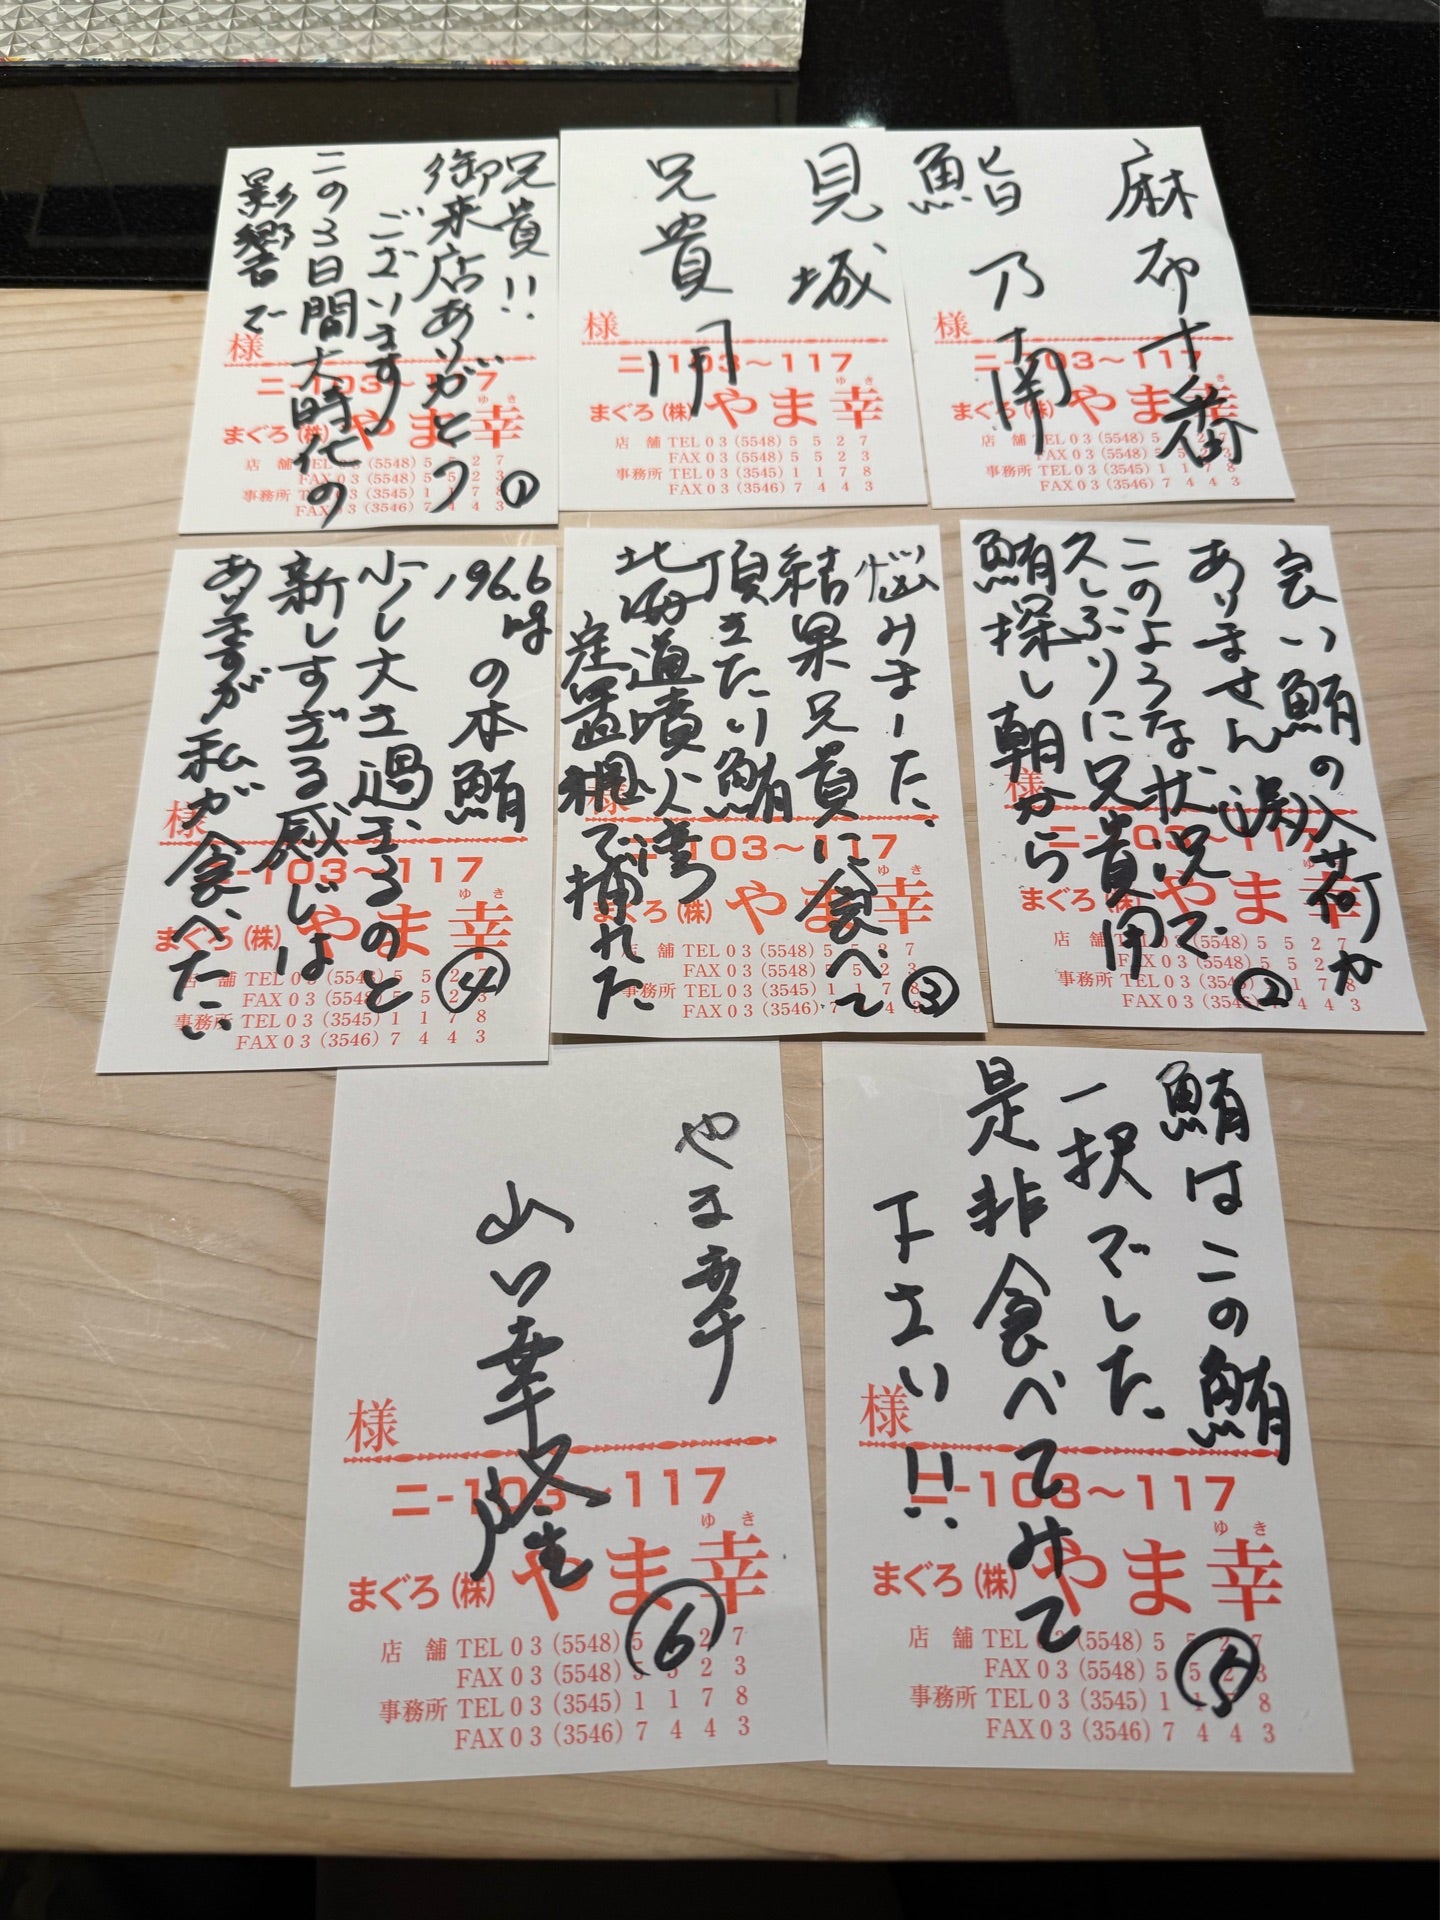 麻布十番
鮨乃南
様
ニ-103～117
ゆき
まぐろ(株)やま幸
店舗 TEL03(5548)5527
FAX03(5548)5523
事務所 TEL03(3545)1178
FAX03(3546)7443
見城
兄貴用
様
ニ-103～117
ゆき
まぐろ(株)やま幸
店舗 TEL03(5548)5527
FAX03(5548)5523
事務所 TEL03(3545)1178
FAX03(3546)7443
兄貴!!
御来店ありがとう
ございます
この3日間大時化の
影響で
①
様
ニ-103～117
ゆき
まぐろ(株)やま幸
店舗 TEL03(5548)5527
FAX03(5548)5523
事務所 TEL03(3545)1178
FAX03(3546)7443
良い鮪の入荷が
ありません(涙)
このような状況で、
久しぶりに兄貴用
鮪探し朝から
②
様
ニ-103～117
ゆき
まぐろ(株)やま幸
店舗 TEL03(5548)5527
FAX03(5548)5523
事務所 TEL03(3545)1178
FAX03(3546)7443
悩みました、
結果兄貴に食べて
頂きたい鮪
北海道噴火湾
定置網で捕れた、
③
様
ニ-103～117
ゆき
まぐろ(株)やま幸
店舗 TEL03(5548)5527
FAX03(5548)5523
事務所 TEL03(3545)1178
FAX03(3546)7443
196.6㎏の本鮪
少し大き過ぎるのと
新しすぎる感じは
ありますが私が食べたい
④
様
ニ-103～117
ゆき
まぐろ(株)やま幸
店舗 TEL03(5548)5527
FAX03(5548)5523
事務所 TEL03(3545)1178
FAX03(3546)7443
鮪はこの鮪
一択でした、
是非食べてみて
下さい!!
⑤
様
ニ-103～117
ゆき
まぐろ(株)やま幸
店舗 TEL03(5548)5527
FAX03(5548)5523
事務所 TEL03(3545)1178
FAX03(3546)7443
やま幸
山口幸隆
⑥
様
ニ-103～117
ゆき
まぐろ(株)やま幸
店舗 TEL03(5548)5527
FAX03(5548)5523
事務所 TEL03(3545)1178
FAX03(3546)7443